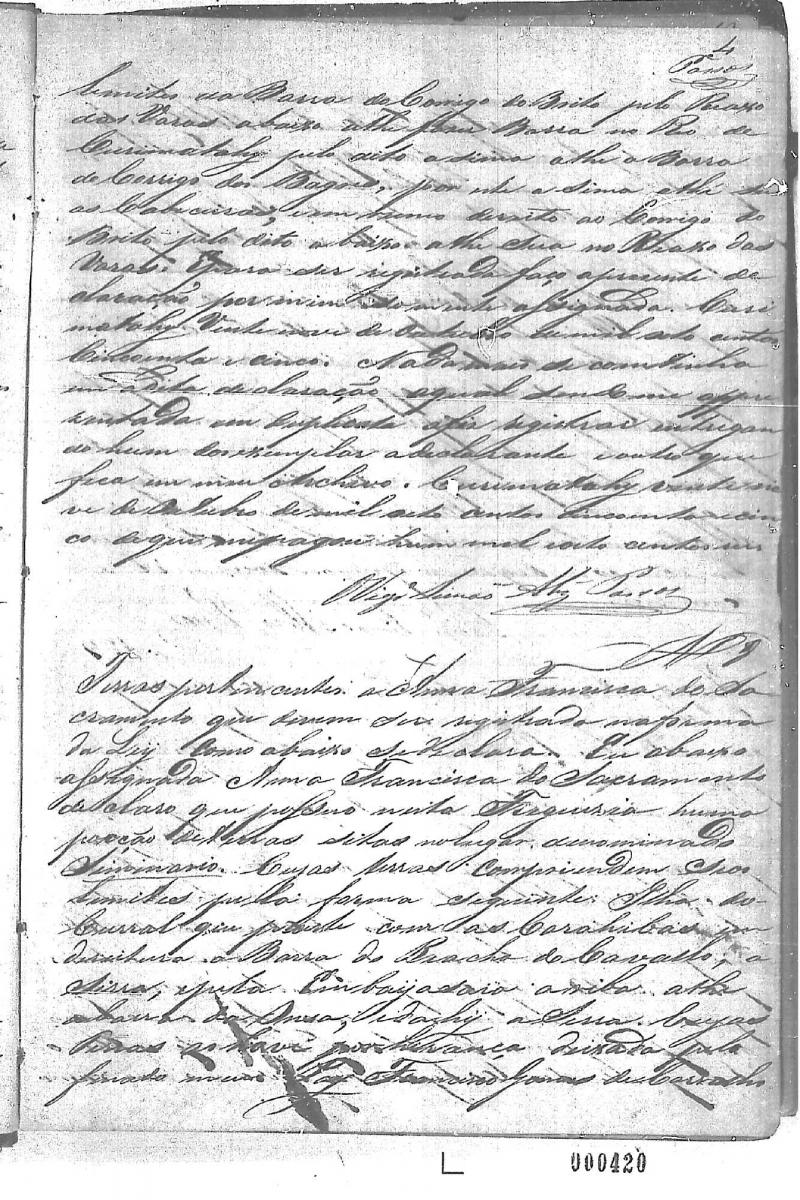 4
Passos
limites da Barra do Corrigo do Brito pelo Riaxo
das Varas abaixo athe fazer Barra no Rio de
Curimatahy pelo dito asima athe a Barra
de Corrigo dos Bagres, por este asima athe
as Cabiceiras, e em rumo dereito ao Corrigo do
Brito pelo dito abaixo athe sua no Riaxo das
Varas. E para ser registrada faço a presente de
claração por mim somente assignada. Curi
matahy Vinte nove de Outubro de mil oito centos
Cincoenta e cinco. Nada mais se continha
em dita declaração a qual sendo me appre
zentada em duplicata a fiz registrar entregan
do hum do exemplar a declarante e outro que
fica em meu Archivo. Curimatahy vinte no
ve de Outubro de mil oito centos cincoenta e cin
co e que me pagou hum mil e oito centos reis
Vigº Passos
Terras pertencentes a Anna Francisca do Sa
cramento que devem ser registrada na forma
da Ley como abaixo se declara. Eu abaixo
assignada Anna Francisca do Sacramento
declaro que possuo nesta Freguezia huma
porção de terras sitas no lugar denominado
Seminario. Cujas terras comprendem seos
limites pela forma seguinte: Ilha do
Curral que parte com as Carahibas em
dereitura a Barra do Riacho do Cavallo, a
Serra, e pela Embayasaia arriba athe
a barra da Onsa, e dahy a Serra. Cujas
terras houve por herança deixada pelo
finado meu Pay Francisco Gomes de Carvalho
000420